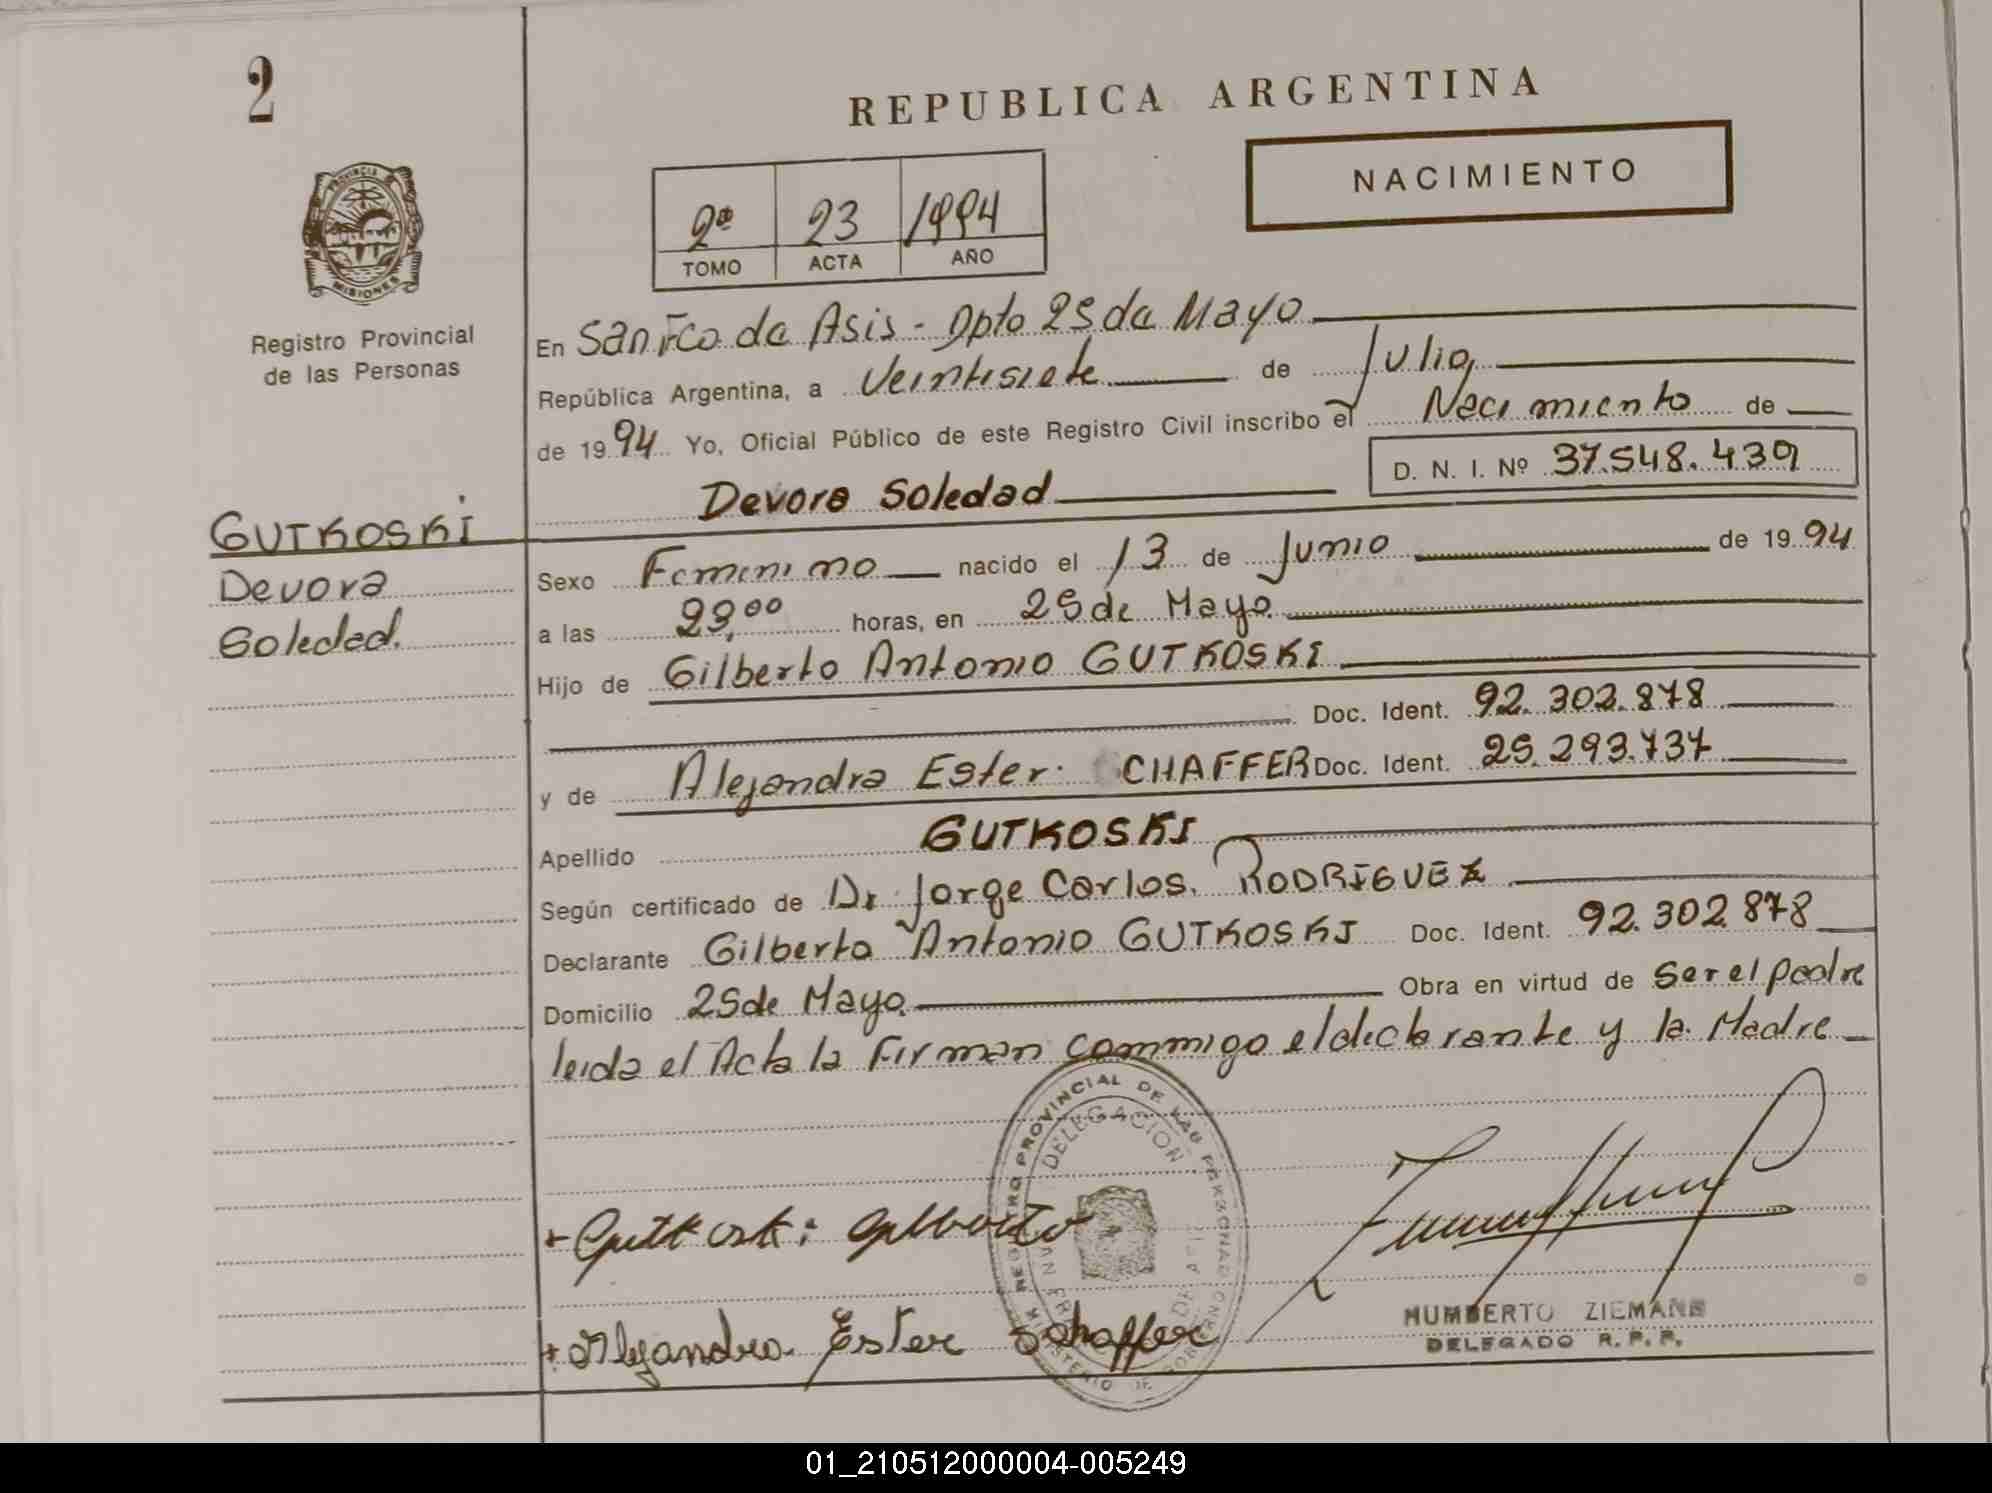 2
REPUBLICA ARGENTINA
NACIMIENTO
PROVINCIA DE
MISIONES
Registro Provincial
de las Personas
2º 23 1994
TOMO ACTA AÑO
En San Fco de Asis - Dpto 25 de Mayo
República Argentina, a Veintisiete de Julio
de 1994 Yo, Oficial Público de este Registro Civil inscribo el Nacimiento de
D. N. I. Nº 37.548.439
Devora Soledad
GUTKOSKI
Devora
Soledad.
Sexo Femenino nacido el 13 de Junio de 1994
a las 23,00 horas, en 25 de Mayo
Hijo de Gilberto Antonio GUTKOSKI
Doc. Ident. 92.302.878
y de Alejandra Ester CHAFFER Doc. Ident. 25.293.737
Apellido GUTKOSKI
Según certificado de Dr Jorge Carlos RODRIGUEZ
Declarante Gilberto Antonio GUTKOSKI Doc. Ident. 92.302.878
Domicilio 25 de Mayo Obra en virtud de Ser el padre
leida el Acta la Firman commigo el declarante y la Madre
REGISTRO PROVINCIAL DE LAS PERSONAS
DELEGACION
MINISTERIO DE GOBIERNO
Gutkoski Gilberto
Alejandra Ester Schaffer
HUMBERTO ZIEMANN
DELEGADO R. P. P.
01_210512000004-005249